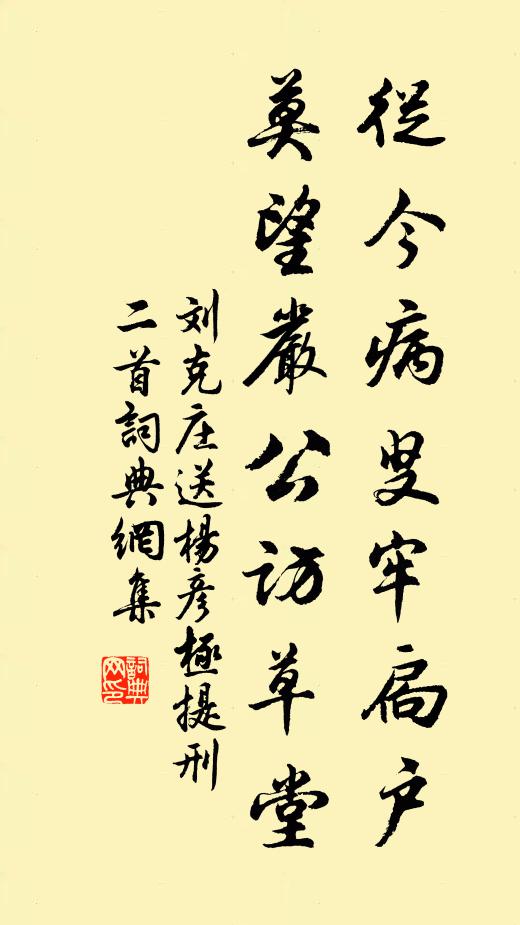 從今病叟牢扃户
莫望嚴公訪草堂
刘克庄送楊彦極提刑
二首詞典網集
詞典网印